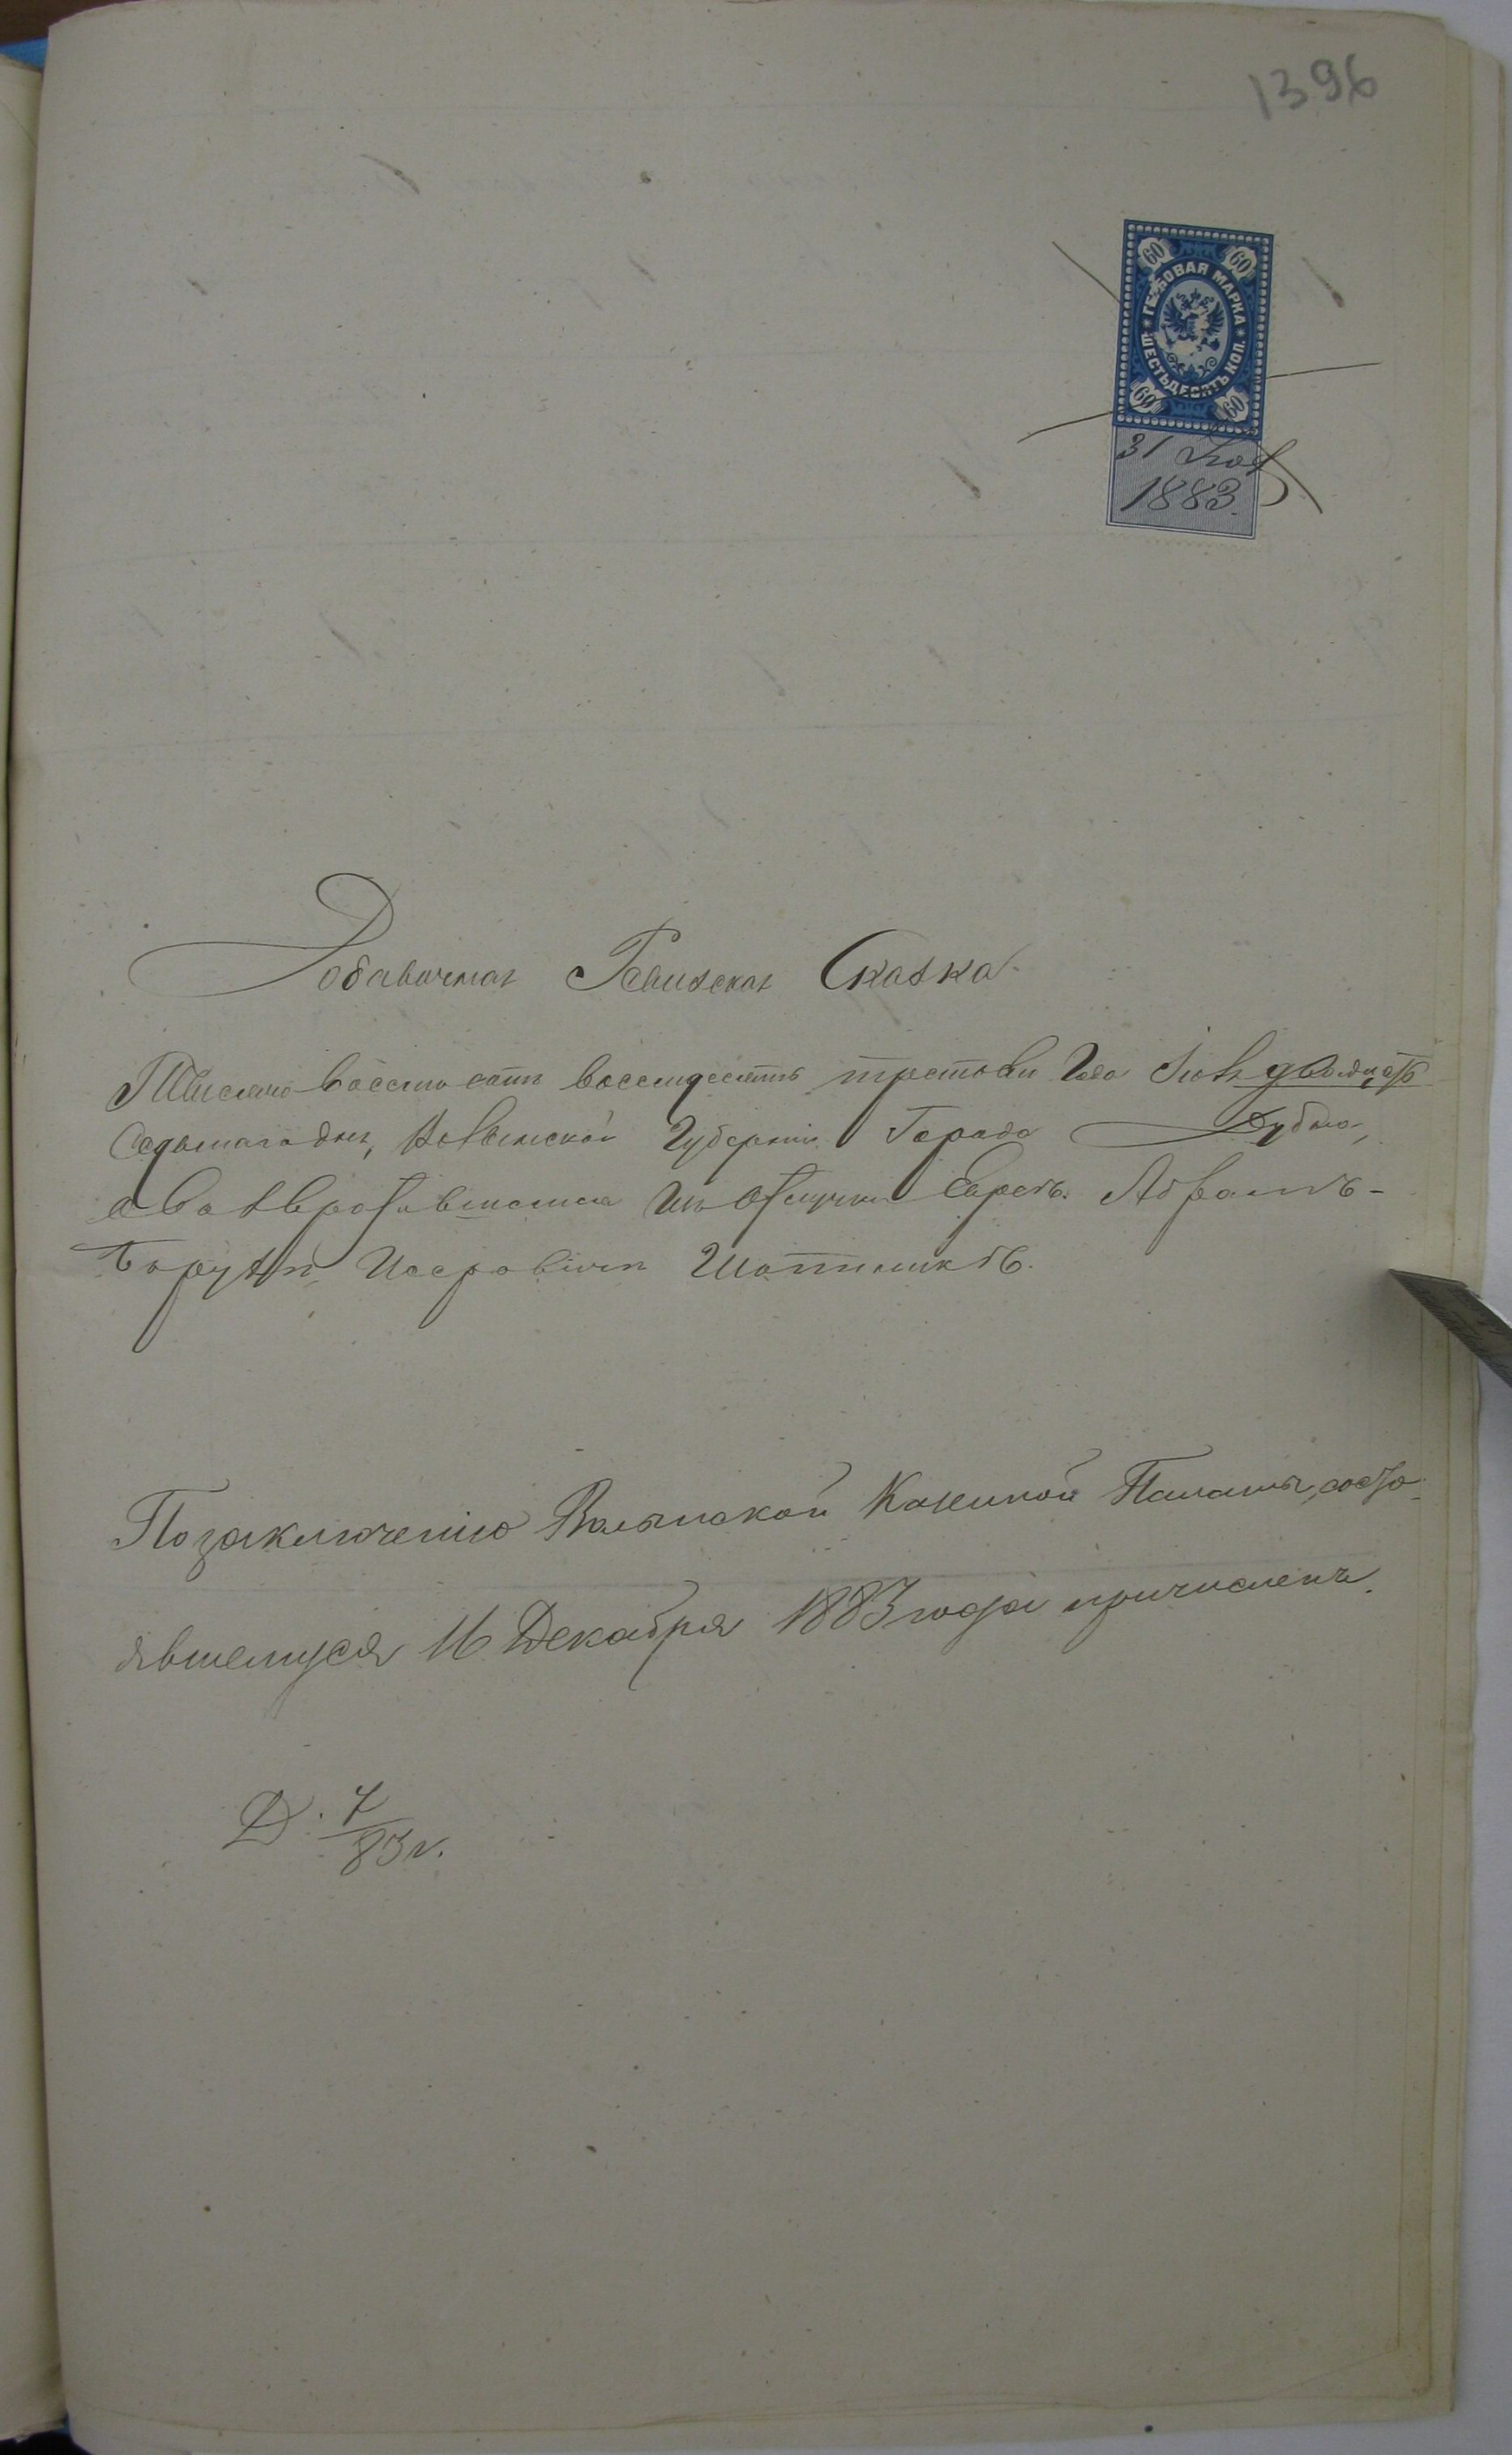 1396
60 60
ГЕРБОВАЯ МАРКА
ШЕСТЬДЕСЯТЪ КОП.
60 60
31
1883.
Добавочная Ревизская Сказка
Тысяча восемь сотъ восемдесятъ третьяго Года двадцать
седьмаго дня, Волынской Губерніи Города Дубно,
о возвратившемся изъ отлучки Еврея Абрамъ-
Борухъ Шотникъ.
По заключенію Волынской Казенной Палаты, состо-
явшемуся 16 Декабря 1883 года причисленъ.
Д. 7
83 г.